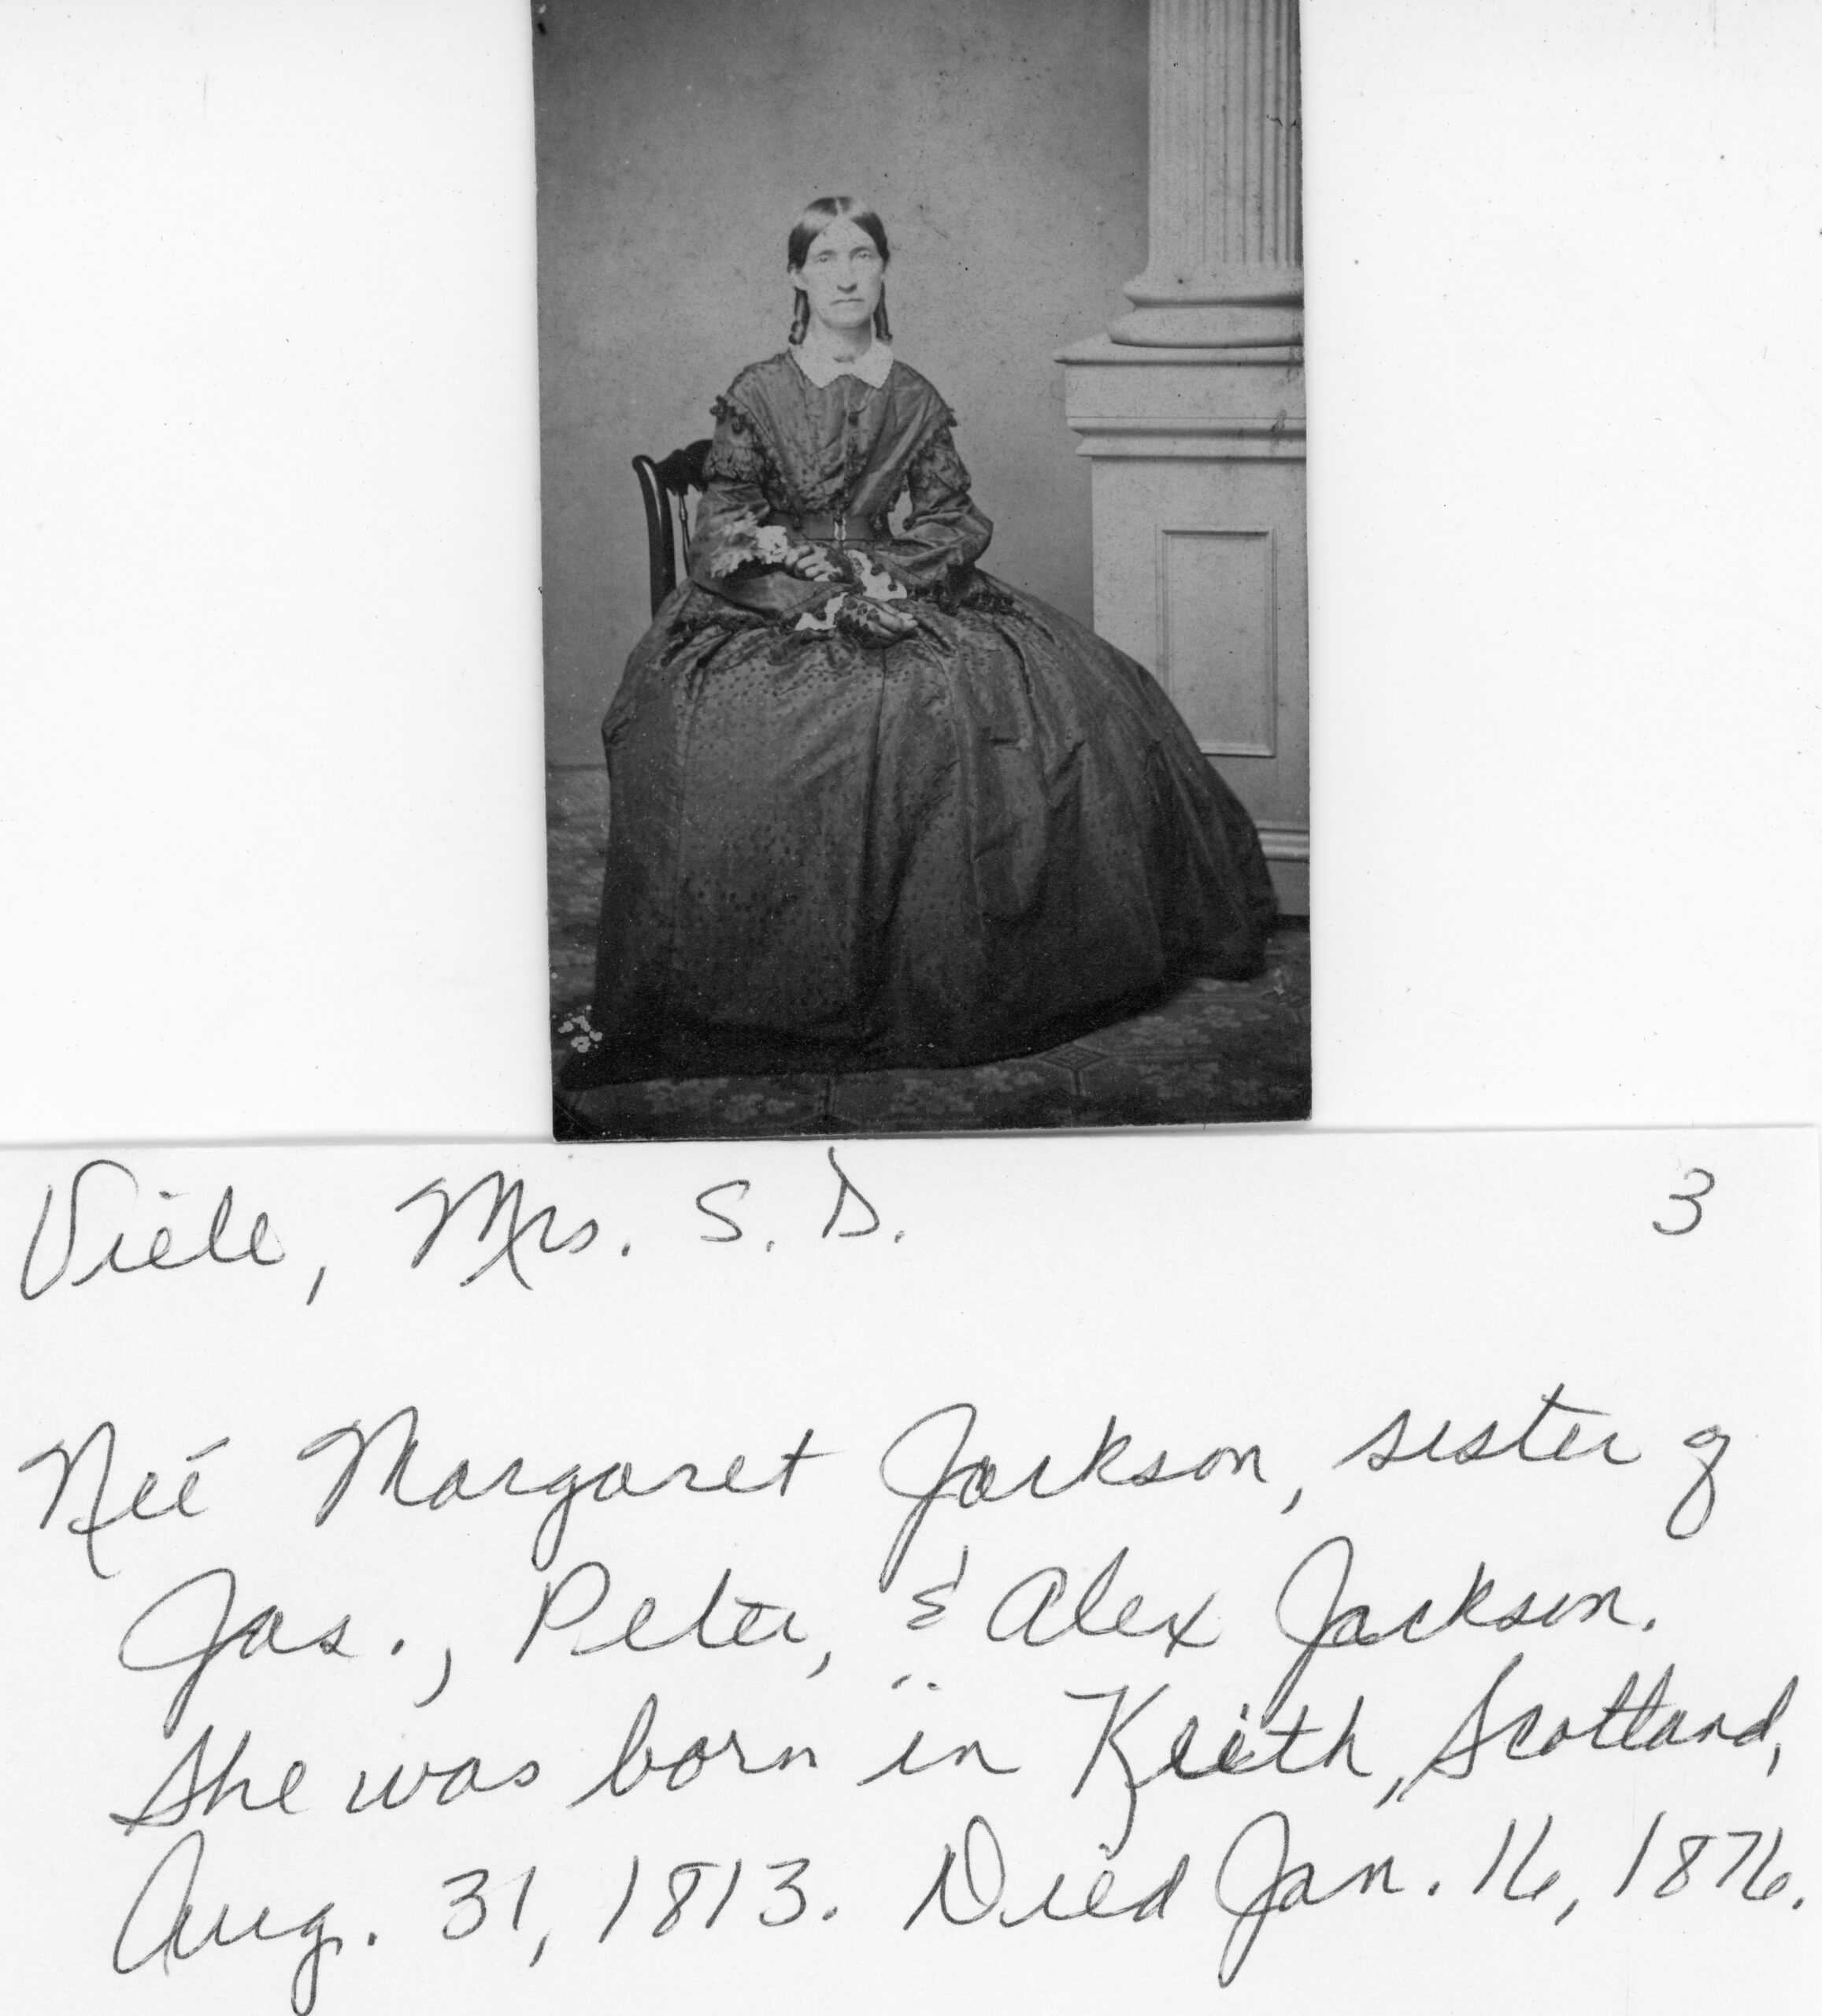 Viele, Mrs. S. D. 3
Neé Margaret Jackson, sister of
Jas., Peter, & Alex Jackson.
She was born in Keith, Scotland,
Aug. 31, 1813. Died Jan. 16, 1876.